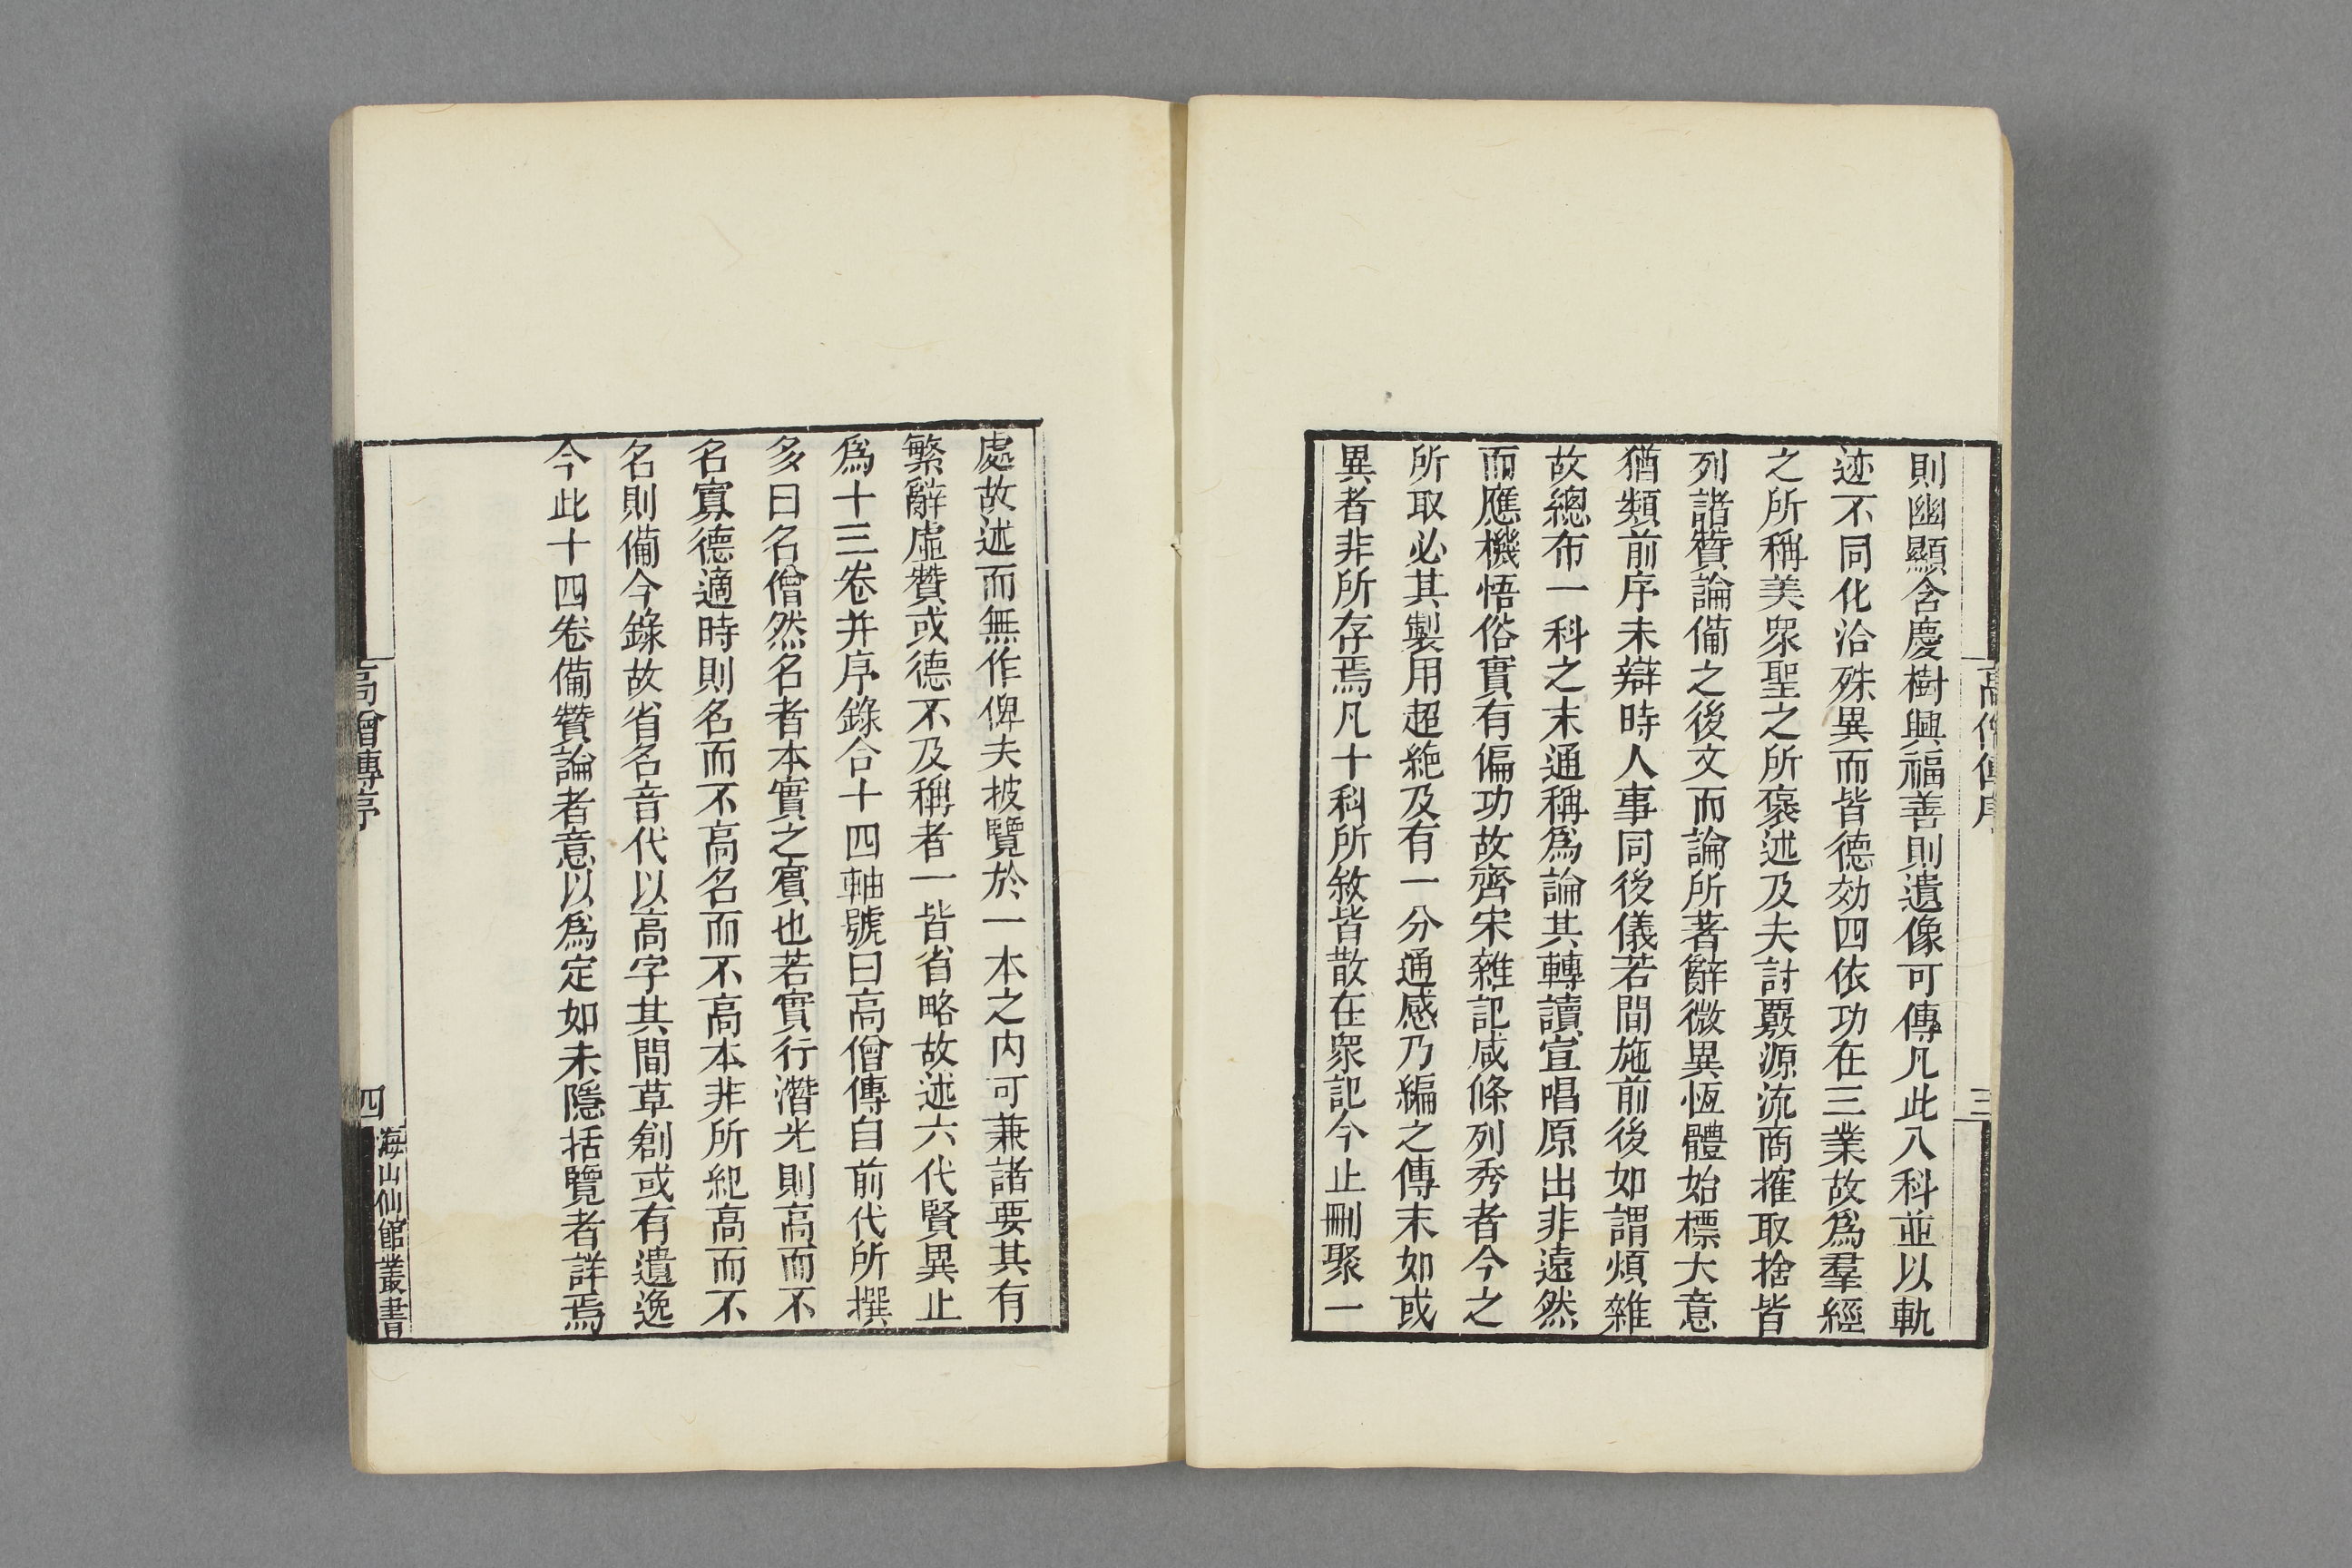 高僧傳序
三
則幽顯含慶樹興福善則遺像可傳凡此八科並以軌
迹不同化洽殊異而皆德効四依功在三業故爲羣經
之所稱美衆聖之所褒述及夫討覈源流商搉取捨皆
列諸贊論備之後文而論所著辭微異恆體始標大意
猶類前序未辯時人事同後儀若間施前後如謂煩雜
故總布一科之末通稱爲論其轉讀宣唱原出非遠然
而應機悟俗實有偏功故齊宋雜記咸條列秀者今之
所取必其製用超絶及有一分通感乃編之傳末如或
異者非所存焉凡十科所敘皆散在衆記今止刪聚一
處故述而無作俾夫披覽於一本之內可兼諸要其有
繁辭虛贊或德不及稱者一皆省略故述六代賢異止
爲十三卷并序錄合十四軸號曰高僧傳自前代所撰
多曰名僧然名者本實之賓也若實行潛光則高而不
名寡德適時則名而不高名而不高本非所紀高而不
名則備今錄故省名音代以高字其間草創或有遺逸
今此十四卷備贊論者意以爲定如未隱括覽者詳焉
高僧傳序
四
海山仙館叢書